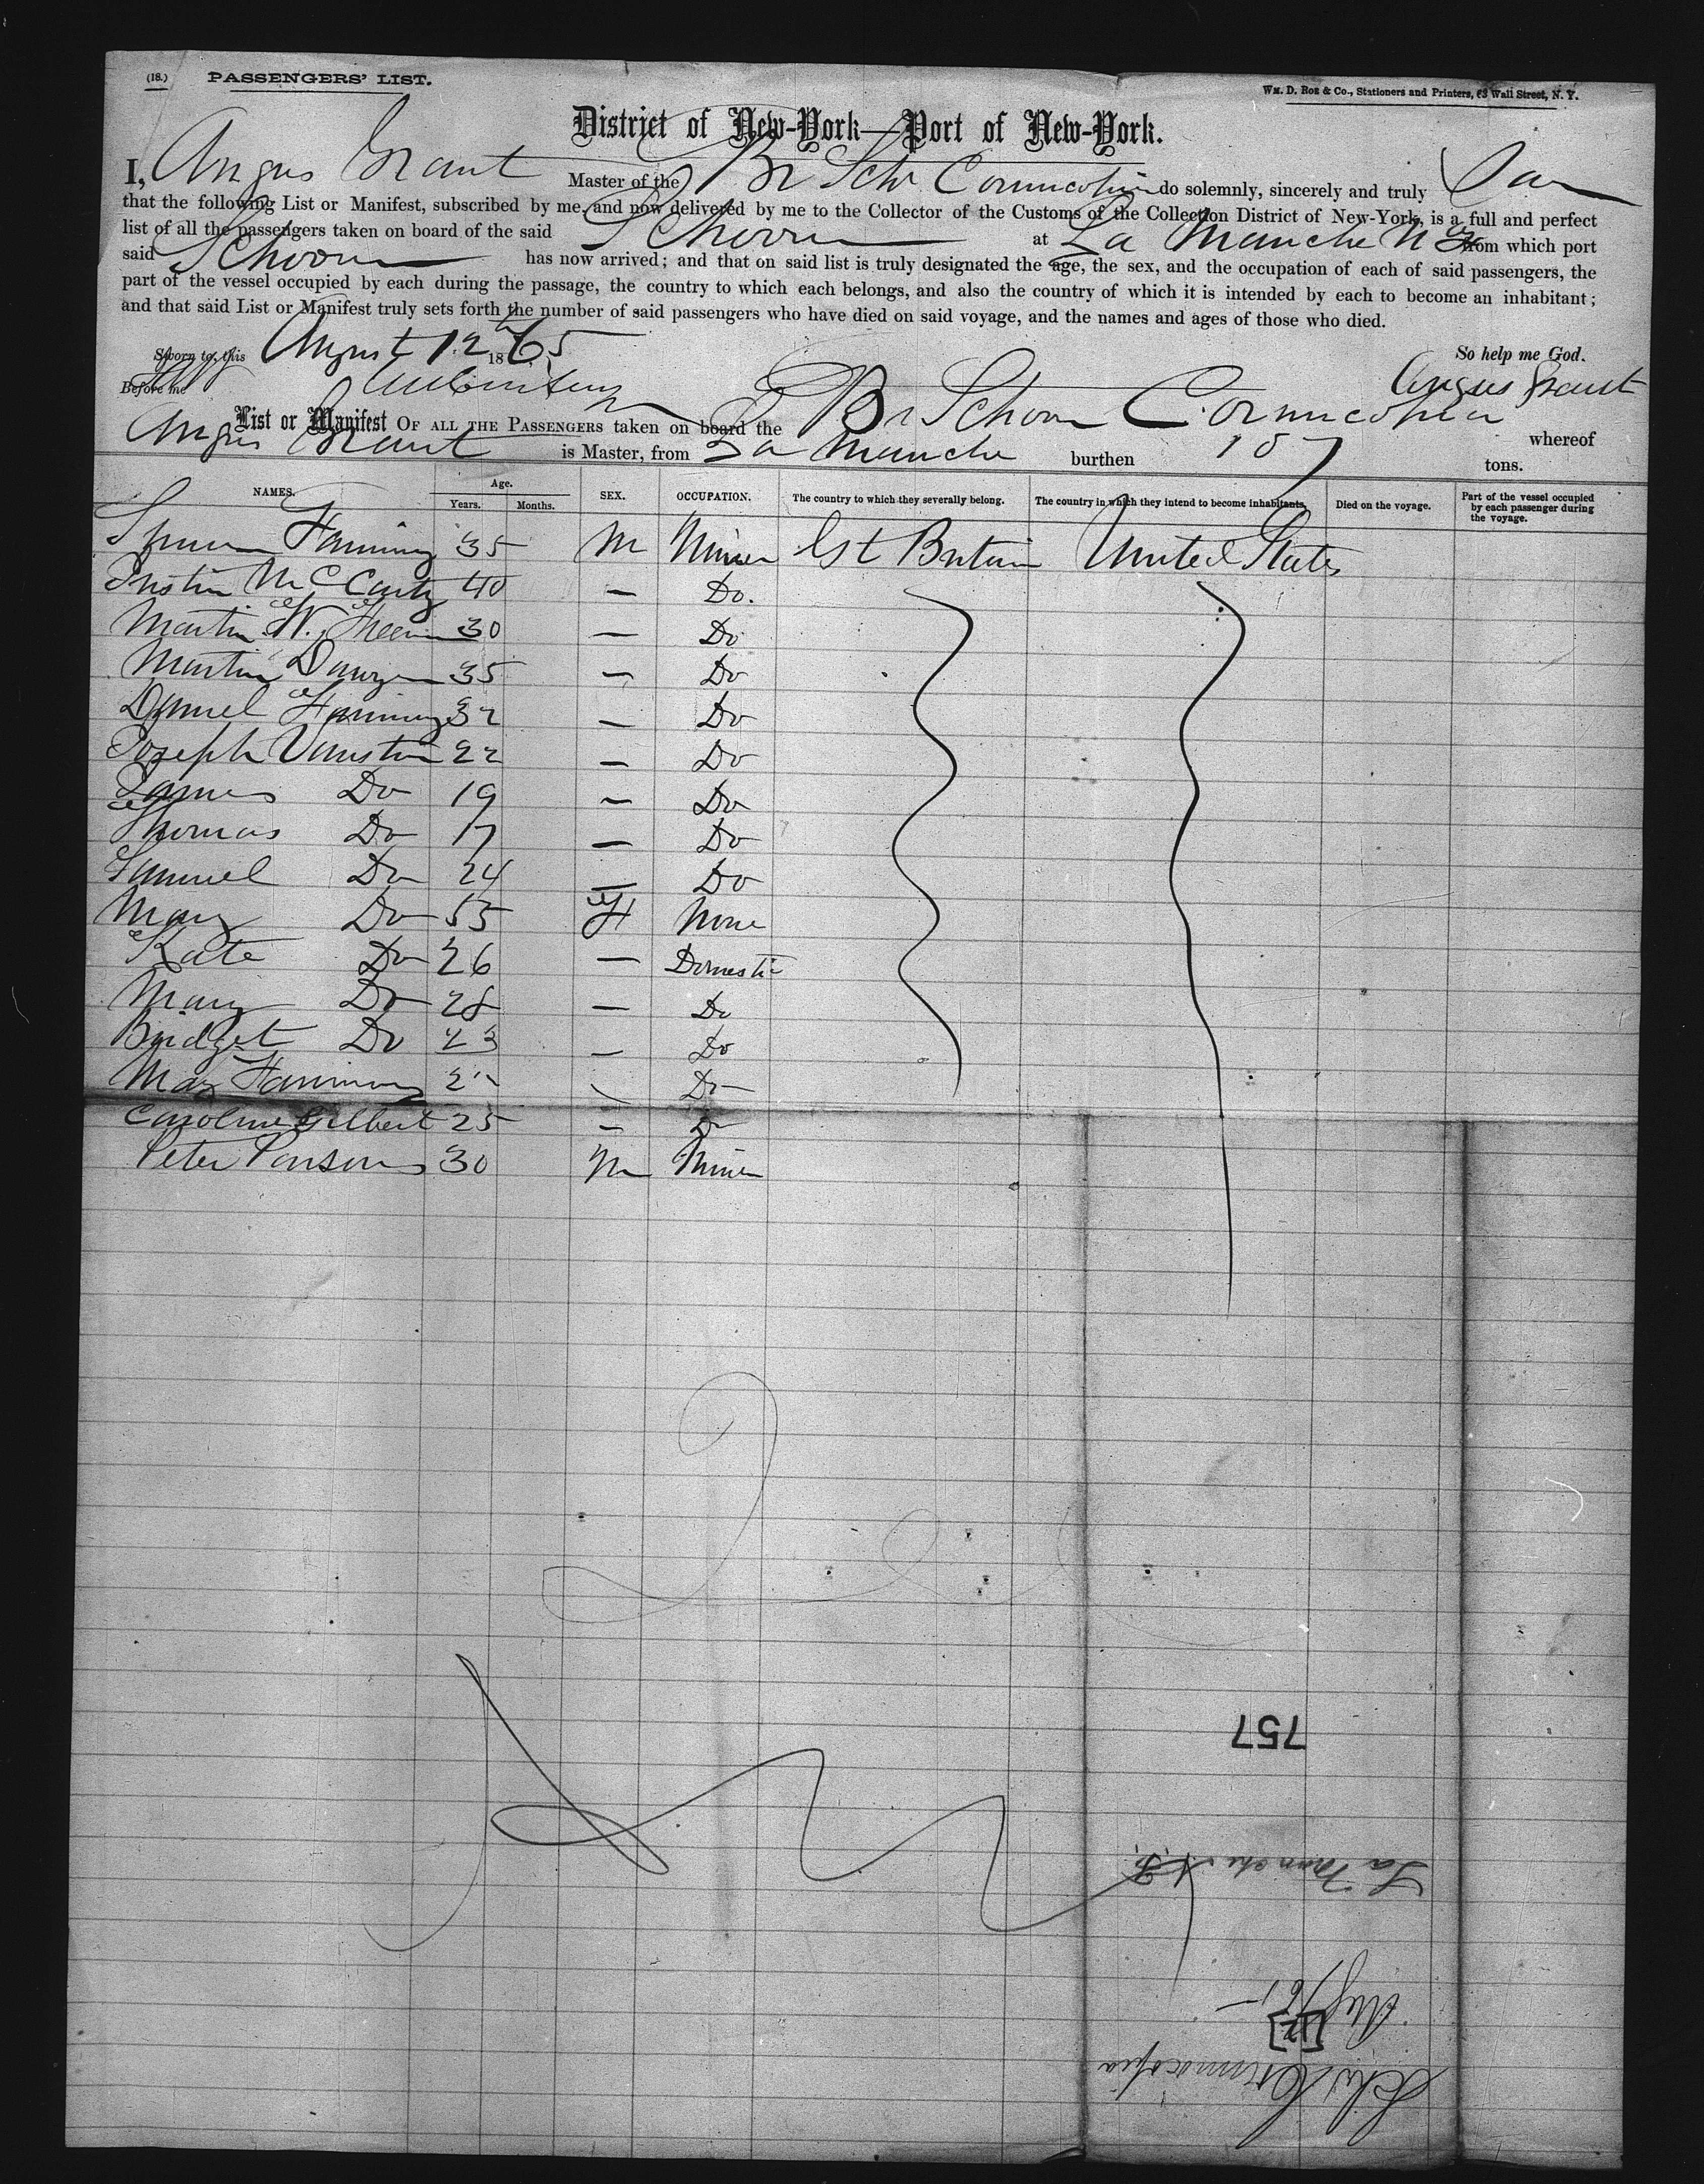 (18.) PASSENGERS' LIST.
WM. D. ROE & CO., Stationers and Printers, 63 Wall Street, N. Y.
District of New-York—Port of New-York.
I, Angus Grant Master of the Br Schr Cornucopia do solemnly, sincerely and truly
that the following List or Manifest, subscribed by me, and now delivered by me to the Collector of the Customs of the Collection District of New-York, is a full and perfect
list of all the passengers taken on board of the said Schoon at La Manche N F from which port
said Schoon has now arrived; and that on said list is truly designated the age, the sex, and the occupation of each of said passengers, the
part of the vessel occupied by each during the passage, the country to which each belongs, and also the country of which it is intended by each to become an inhabitant;
and that said List or Manifest truly sets forth the number of said passengers who have died on said voyage, and the names and ages of those who died.
Sworn to, this August 12th 1865 So help me God.
Before me Angus Grant
List or Manifest OF ALL THE PASSENGERS taken on board the Br Schoon Cornucopia whereof
Angus Grant is Master, from La Manche burthen 107 tons.
NAMES. Age. Years. Months. SEX. OCCUPATION. The country to which they severally belong. The country in which they intend to become inhabitants. Died on the voyage. Part of the vessel occupied by each passenger during the voyage.
Fanning 35 M Miner Gt Britain United States
McCarty 40 — Do.
Martin W. 30 — Do
Martin 35 — Do
Daniel Fanning 32 — Do
Joseph 22 — Do
James Do 19 — Do
Thomas Do 17 — Do
Samuel Do 24 — Do
Mary Do 55 F None
Kate Do 26 — Domestic
Mary Do 28 — Do
Bridget Do 23 — Do
May Fanning — Do
Caroline Gilbert 25 — Do
Peter Parsons 30 M Miner
757
La Manche N.F.
Aug
[12]
Schr Cornucopia